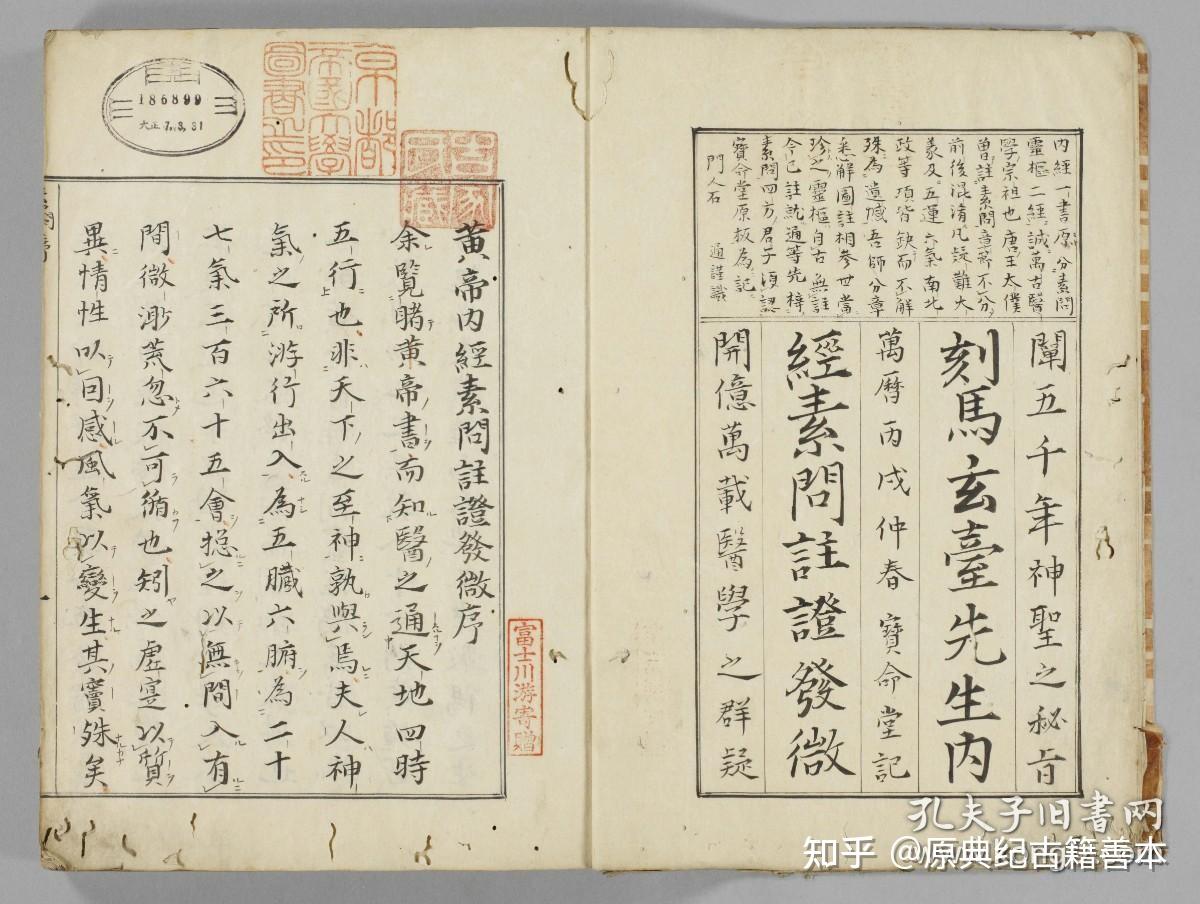 內經一書原分素問
靈樞二經誠萬古醫
學宗祖也唐王太僕
曾註素問章節不分
前後混淆凡疑難大
義及五運六氣南北
政等項皆缺而不解
殊為遺憾吾師分章
悉解圖註相參世當
珍之靈樞自古無註
今已註就通等先梓
素問四方君子須認
寶命堂原板為記
門人石 通謹識
闡五千年神聖之秘旨
刻馬玄臺先生內
萬曆丙戌仲春寶命堂記
經素問註證發微
開億萬載醫學之群疑
黃帝內經素問註證發微序
余覽睹黃帝書而知醫之通天地四時
五行也非天下之至神孰與焉夫人神
氣之所游行出入為五臟六腑為二十
七氣三百六十五會總之以無間入有
間微渺荒忽不可循也矧之虛寔以質
異情性以回感風氣以變生其竇殊矣
京都
帝國大學
圖書之印
富士川游寄贈
186899
大正7.3.31
孔夫子旧书网
知乎 @原典纪古籍善本